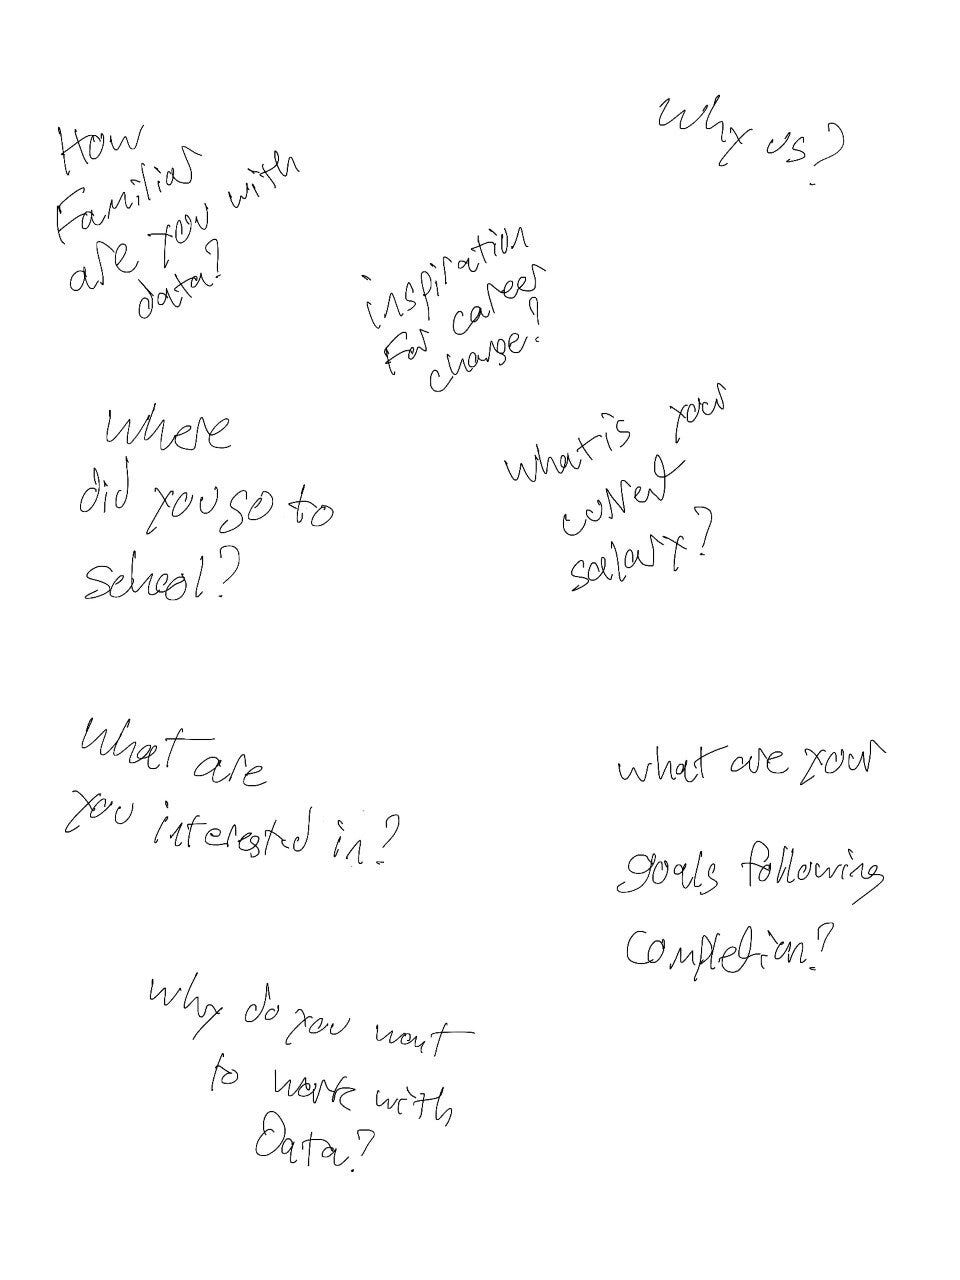 How
Familiar
are you with
data?
Why us?
inspiration
For career
change?
Where
did you go to
school?
what is your
current
salary?
What are
you interested in?
what are your
goals following
completion?
Why do you want
to work with
Data?